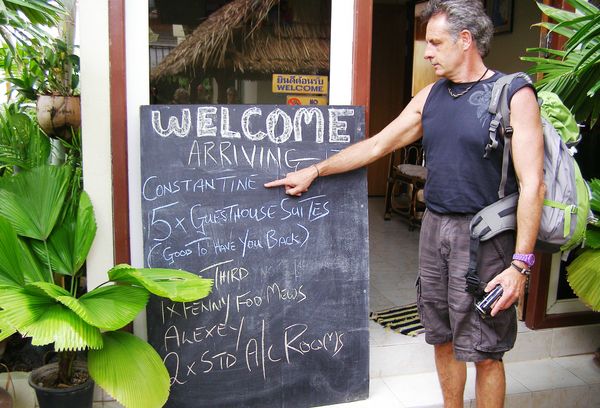 ยินดีต้อนรับ
WELCOME
NO
WELCOME
ARRIVING
CONSTANTINE
5 x GUESTHOUSE SUITES
(GOOD TO HAVE YOU BACK)
THIRD
1 x FENNY FOO MEWS
ALEXEY
2 x STD A/C ROOMS